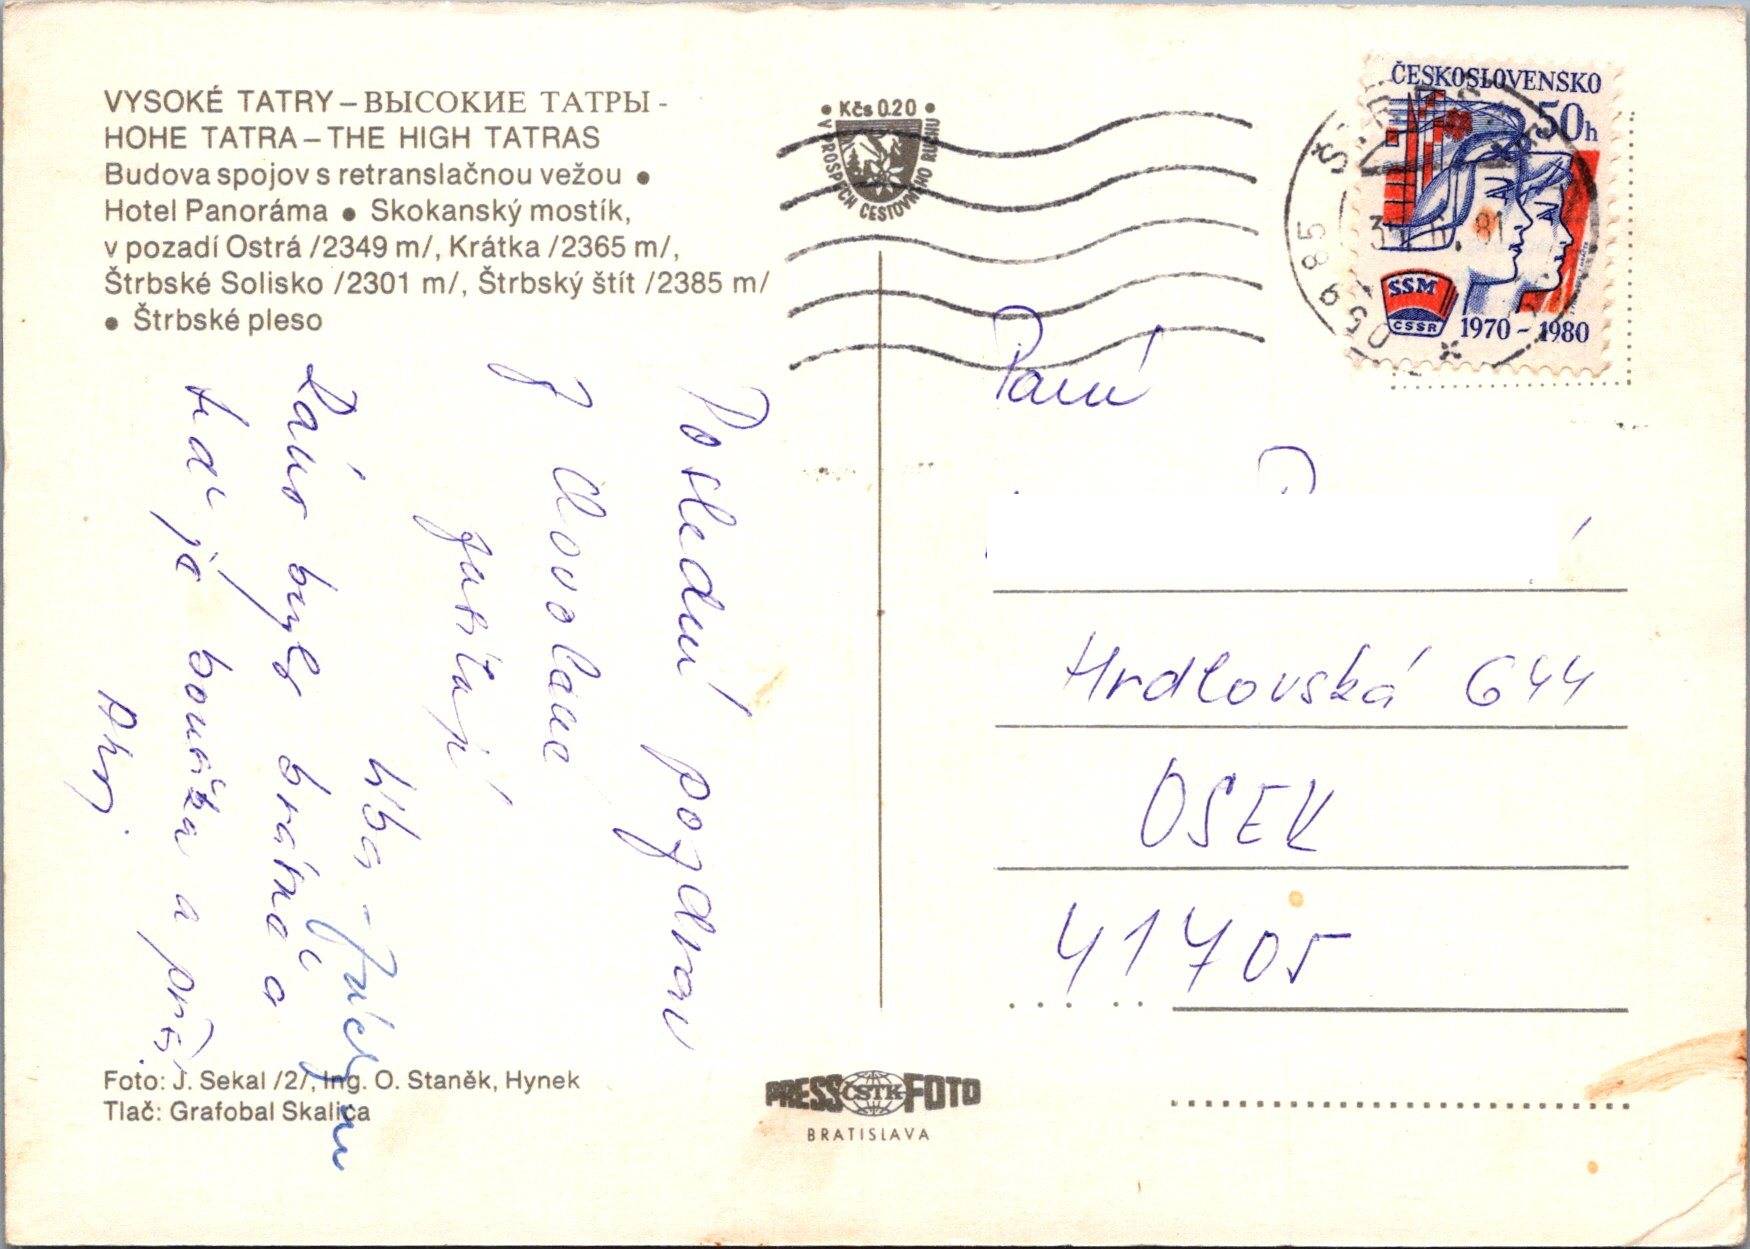 VYSOKÉ TATRY – ВЫСОКИЕ ТАТРЫ -
HOHE TATRA – THE HIGH TATRAS
Budova spojov s retranslačnou vežou •
Hotel Panoráma • Skokanský mostík,
v pozadí Ostrá /2349 m/, Krátka /2365 m/,
Štrbské Solisko /2301 m/, Štrbský štít /2385 m/
• Štrbské pleso
• Kčs 0.20 •
V PROSPECH CESTOVNÉHO RUCHU
ČESKOSLOVENSKO
50h
SSM
ČSSR
1970 - 1980
059 85
81
Poslední pozdrav
z dovolené
Ráno bylo krásně a
teď je bouřka a prší.
Ahoj.
Paní
Hrdlovská 644
OSEK
41705
Foto: J. Sekal /2/, Ing. O. Staněk, Hynek
Tlač: Grafobal Skalica
PRESS ČSTK FOTO
BRATISLAVA